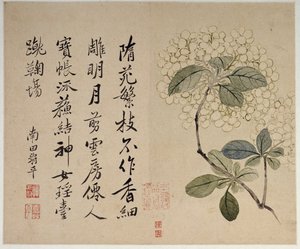 隋苑繁枝不作香細
雕明月剪雲房僊人
寶帳流蘇結神女瑤臺
蹴鞠場
南田壽平